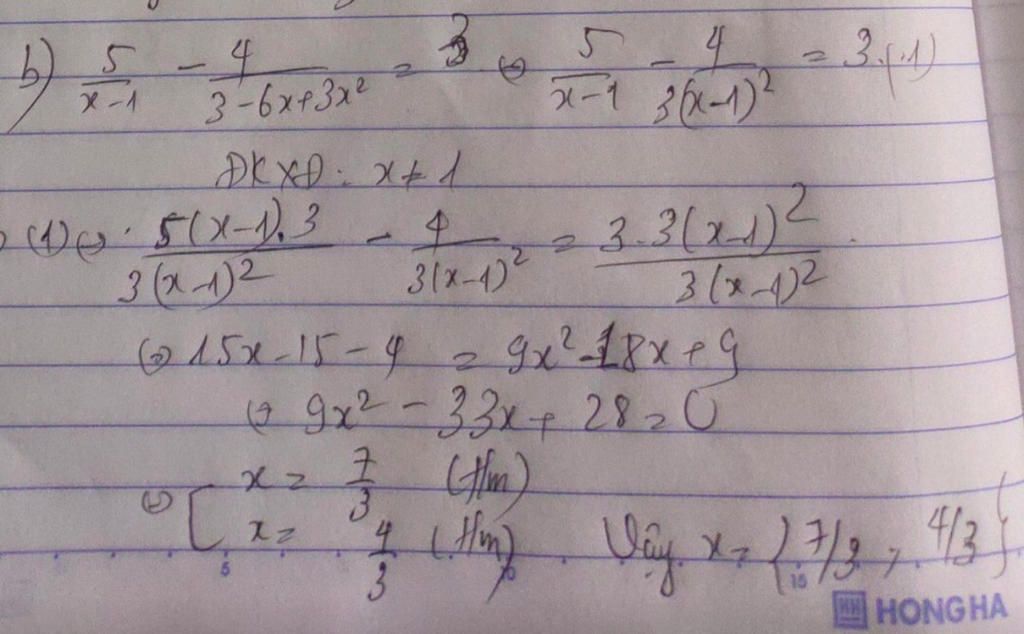 b) 5/(x-1) - 4/(3-6x+3x²) = 3 ⇔ 5/(x-1) - 4/(3(x-1)²) = 3 (1)
ĐKXĐ: x ≠ 1
(1) ⇔ 5(x-1).3/(3(x-1)²) - 4/(3(x-1)²) = 3.3(x-1)²/(3(x-1)²)
⇔ 15x - 15 - 4 = 9x² - 18x + 9
⇔ 9x² - 33x + 28 = 0
⇔ [ x = 7/3 (t/m)
x = 4/3 (t/m) Vậy x = {7/3 ; 4/3}
5 10 15
HH HONG HA